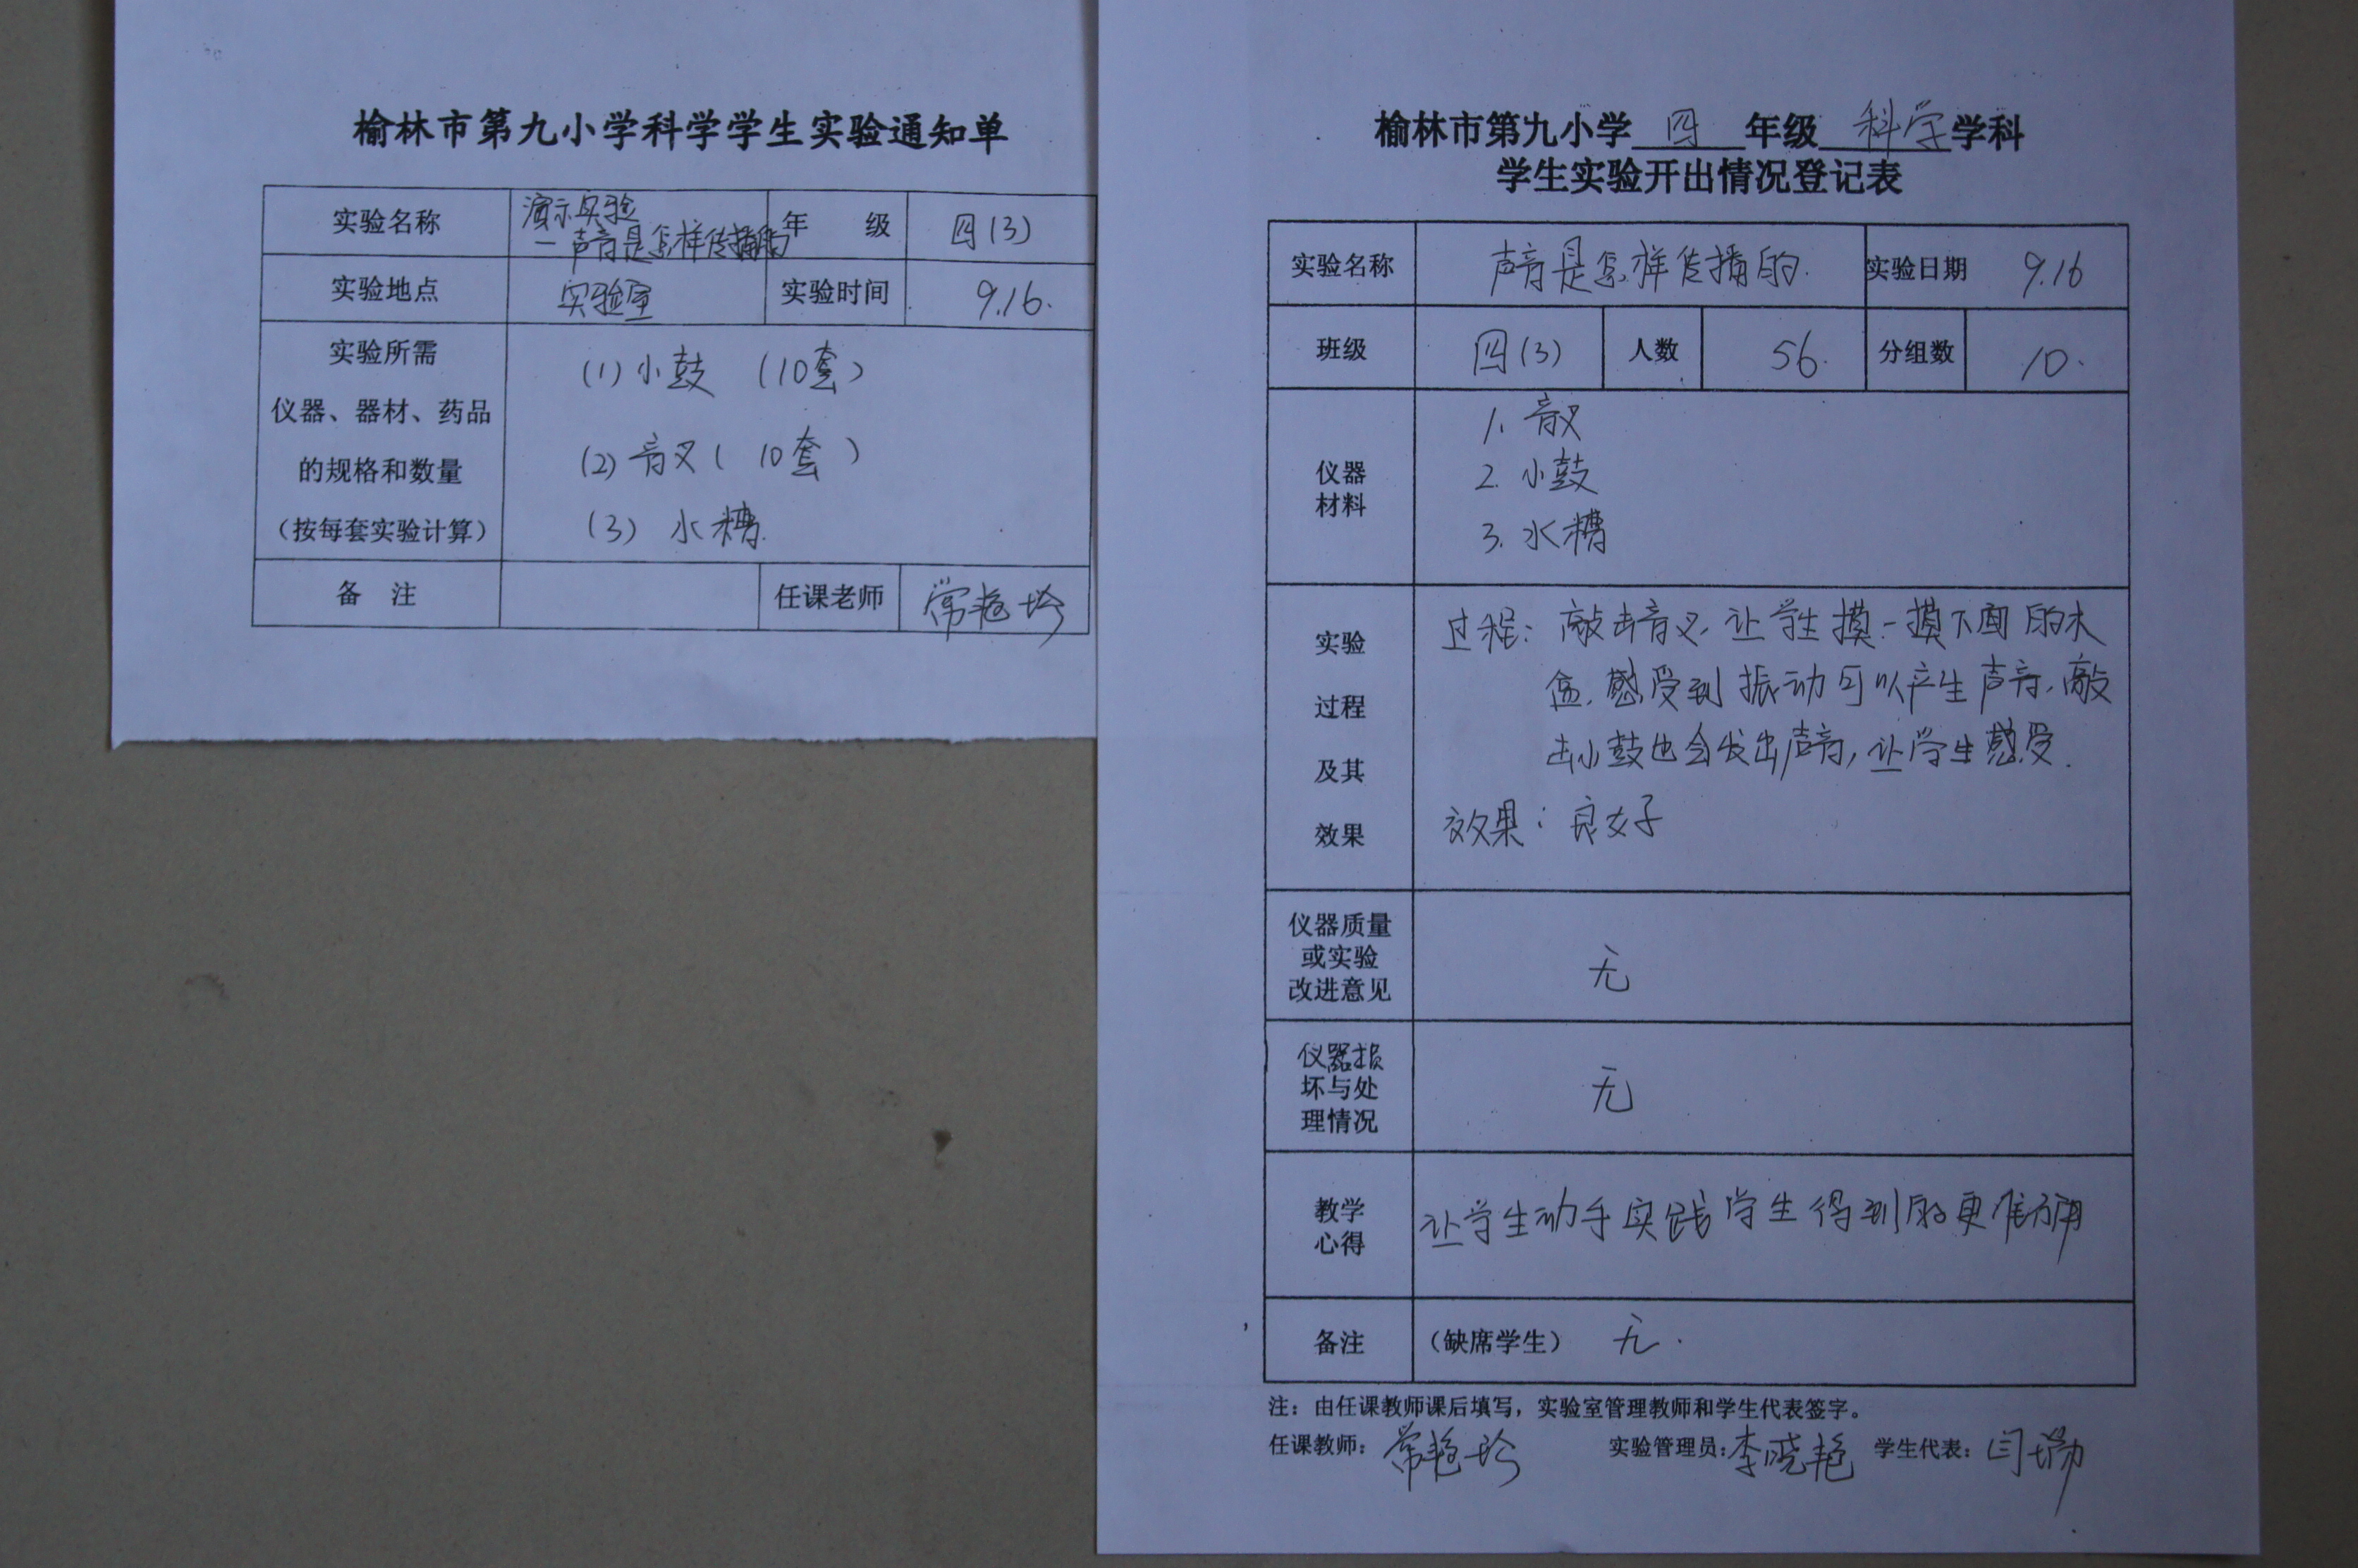 榆林市第九小学科学学生实验通知单
实验名称 演示实验
一声音是怎样传播的 年 级 四(3)
实验地点 实验室 实验时间 9.16.
实验所需
仪器、器材、药品
的规格和数量
(按每套实验计算)
(1) 小鼓 (10套)
(2) 音叉 ( 10套 )
(3) 水槽.
备 注 任课老师 常艳
榆林市第九小学 四 年级 科学 学科
学生实验开出情况登记表
实验名称 声音是怎样传播的. 实验日期 9.16
班级 四(3) 人数 56. 分组数 10.
仪器
材料
1. 音叉
2. 小鼓
3. 水槽
实验
过程
及其
效果
过程: 敲击音叉, 让学生摸一摸下面的木
盒, 感受到振动可以产生声音, 敲
击小鼓也会发出声音, 让学生感受.
效果: 良好
仪器质量
或实验
改进意见
无
仪器损
坏与处
理情况
无
教学
心得
让学生动手实践学生得到的更准确
备注 (缺席学生) 无.
注：由任课教师课后填写，实验室管理教师和学生代表签字。
任课教师: 常艳 实验管理员: 李晓艳 学生代表: 闫